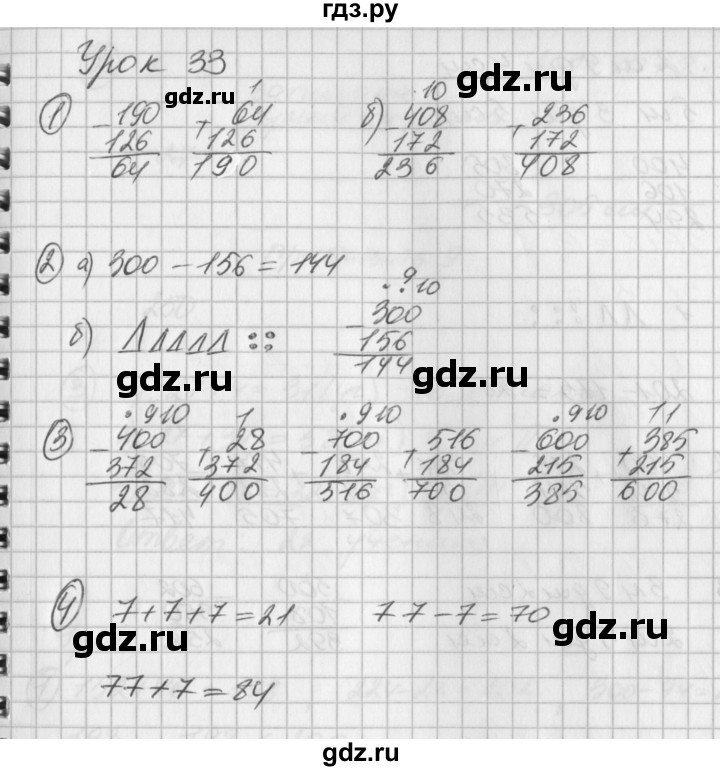 гдз.ру
Урок 33
1 10
① - 190 + 64 б) - 408 + 236
126 126 172 172
64 190 236 408
gdz.ru
② а) 300 - 156 = 144
. . 9 10
- 300
б) 156
144
gdz.ru gdz.ru
. 9 10 1 . 9 10 . 9 10 1 1
③ - 400 + 28 - 700 + 516 - 600 + 385
372 372 184 184 215 215
28 400 516 700 385 600
④ 7+7+7=21 77-7=70
gdz.ru gdz.ru
77+7=84
gdz.ru